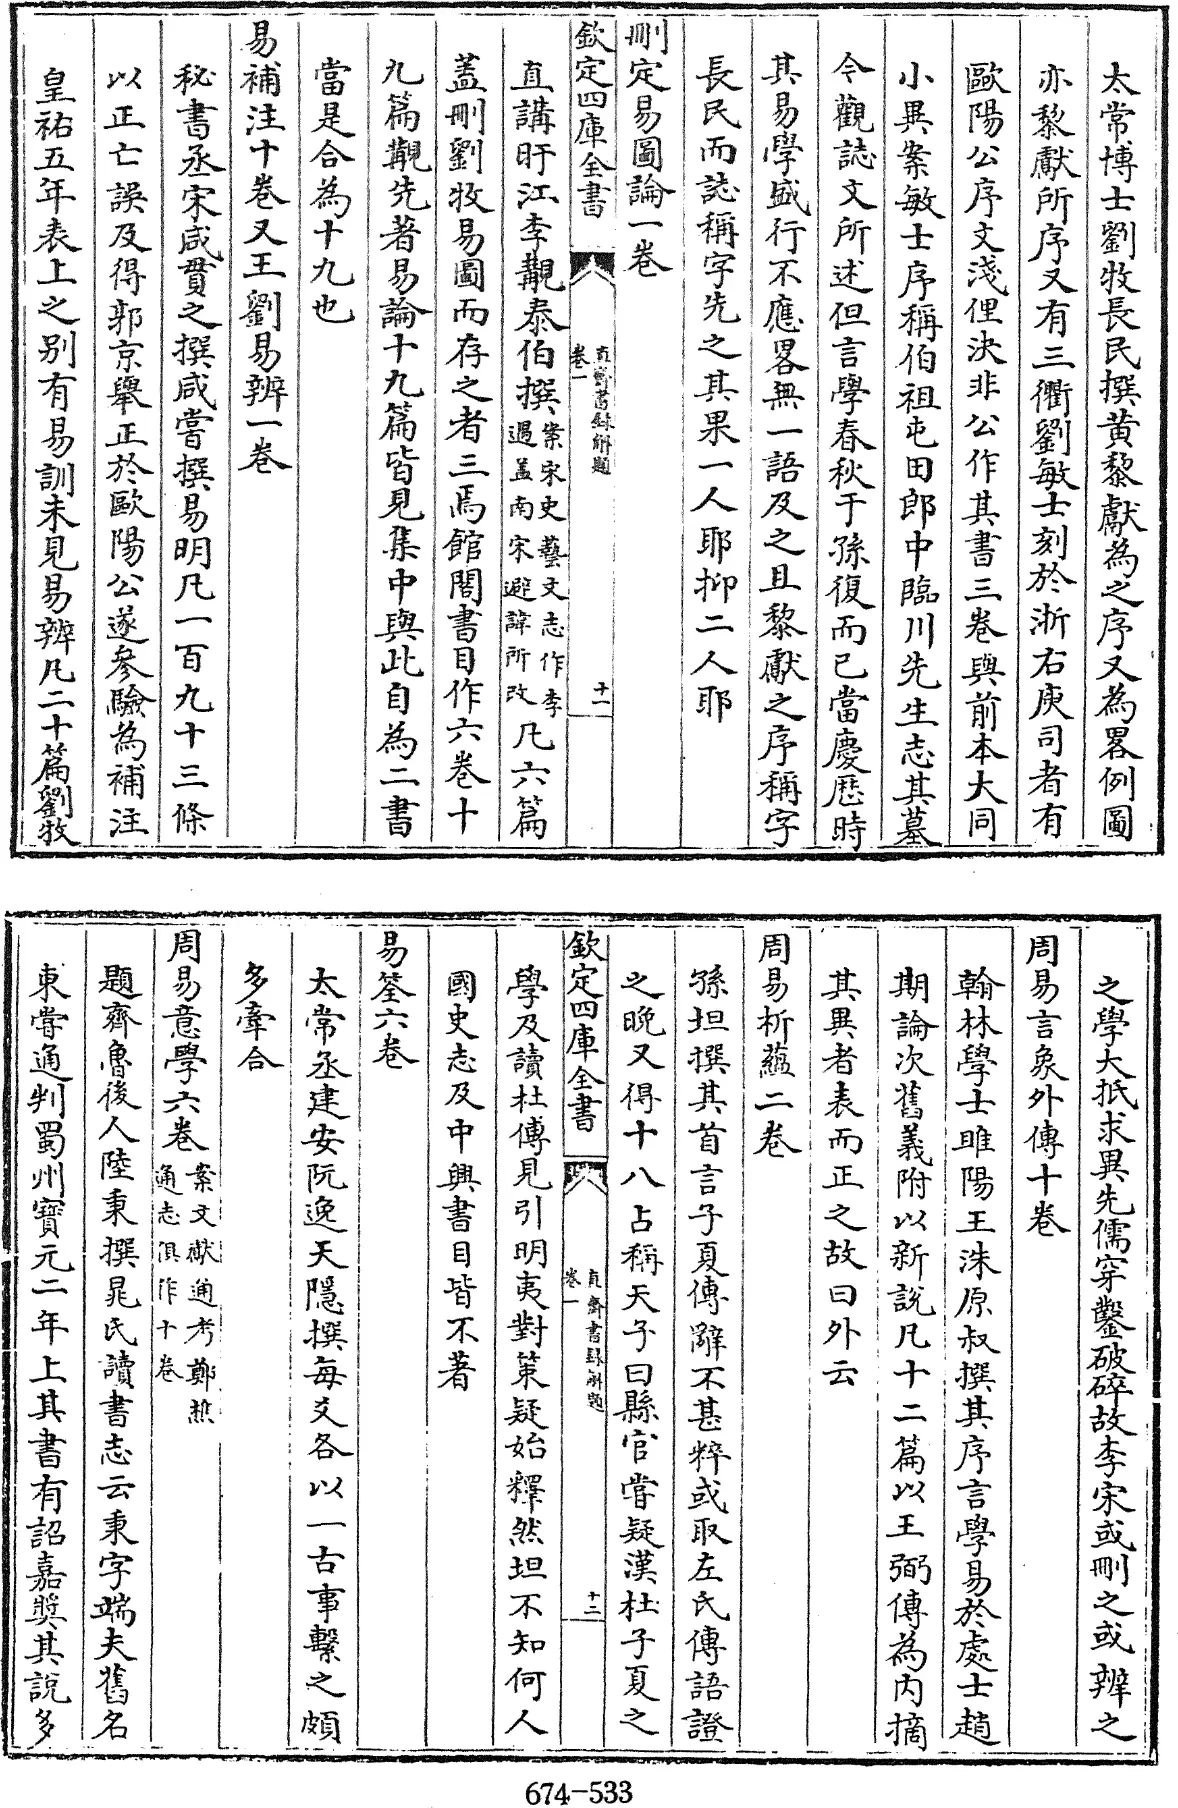 太常博士劉牧長民撰黄黎獻為之序又為畧例圖
亦黎獻所序又有三衢劉敏士刻於浙右庾司者有
歐陽公序文淺俚決非公作其書三卷與前本大同
小異案敏士序稱伯祖屯田郎中臨川先生志其墓
今觀誌文所述但言學春秋于孫復而已當慶厯時
其易學盛行不應畧無一語及之且黎獻之序稱字
長民而誌稱字先之其果一人耶抑二人耶
刪定易圖論一卷
欽定四庫全書
直齋書録解題
卷一
十一
直講盱江李覯泰伯撰案宋史藝文志作李
遘蓋南宋避諱所改凡六篇
蓋刪劉牧易圖而存之者三焉館閣書目作六卷十
九篇觀先著易論十九篇皆見集中與此自為二書
當是合為十九也
易補注十卷又王劉易辨一卷
秘書丞宋咸貫之撰咸嘗撰易明凡一百九十三條
以正亡誤及得郭京舉正於歐陽公遂參驗為補注
皇祐五年表上之别有易訓未見易辨凡二十篇劉牧
之學大抵求異先儒穿鑿破碎故李宋或刪之或辨之
周易言象外傳十卷
翰林學士睢陽王洙原叔撰其序言學易於處士趙
期論次舊義附以新說凡十二篇以王弼傳為内摘
其異者表而正之故曰外云
周易析蘊二卷
孫坦撰其首言子夏傳辭不甚粹或取左氏傳語證
之晚又得十八占稱天子曰縣官嘗疑漢杜子夏之
欽定四庫全書
直齋書録解題
卷一
十二
學及讀杜傳見引明夷對策疑始釋然坦不知何人
國史志及中興書目皆不著
易筌六卷
太常丞建安阮逸天隱撰每爻各以一古事繫之頗
多牽合
周易意學六卷案文獻通考鄭樵
通志俱作十卷
題齊魯後人陸秉撰晁氏讀書志云秉字端夫舊名
東嘗通判蜀州寶元二年上其書有詔嘉奬其說多
674-533